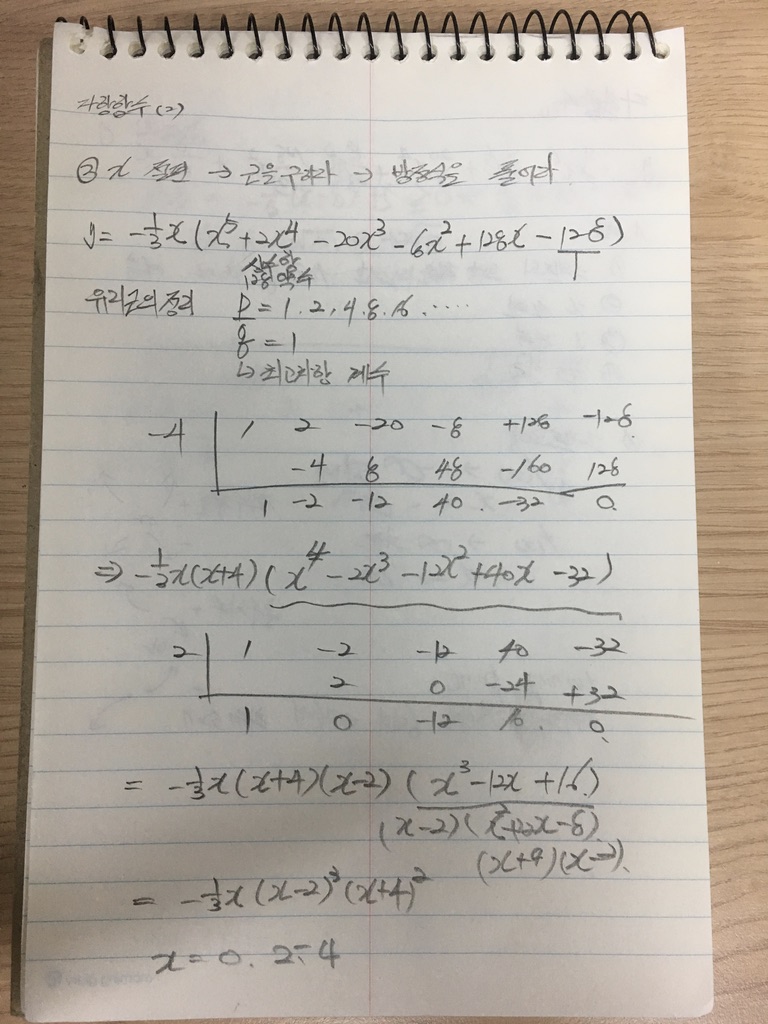 다항함수(2)
② x 절편 → 근을구하라 → 방정식을 풀어라
y = -1/3 x (x⁵ + 2x⁴ - 20x³ - 6x² + 128x - 128)
상수항 1
128 약수
유리근의 정리 p = 1. 2, 4. 8. 16. ....
q = 1
↳ 최고차항 계수
-4 | 1 2 -20 -8 +128 -128.
-4 8 48 -160 128
1 -2 -12 40. -32 0.
⇒ -1/3 x(x+4) (x⁴ - 2x³ - 12x² + 40x - 32)
2 | 1 -2 -12 40 -32
2 0 -24 +32
1 0 -12 16. 0.
= -1/3 x(x+4)(x-2) (x³ - 12x + 16.)
(x-2)(x²+2x-8)
(x+4)(x-2).
= -1/3 x (x-2)³ (x+4)²
x = 0. 2. -4